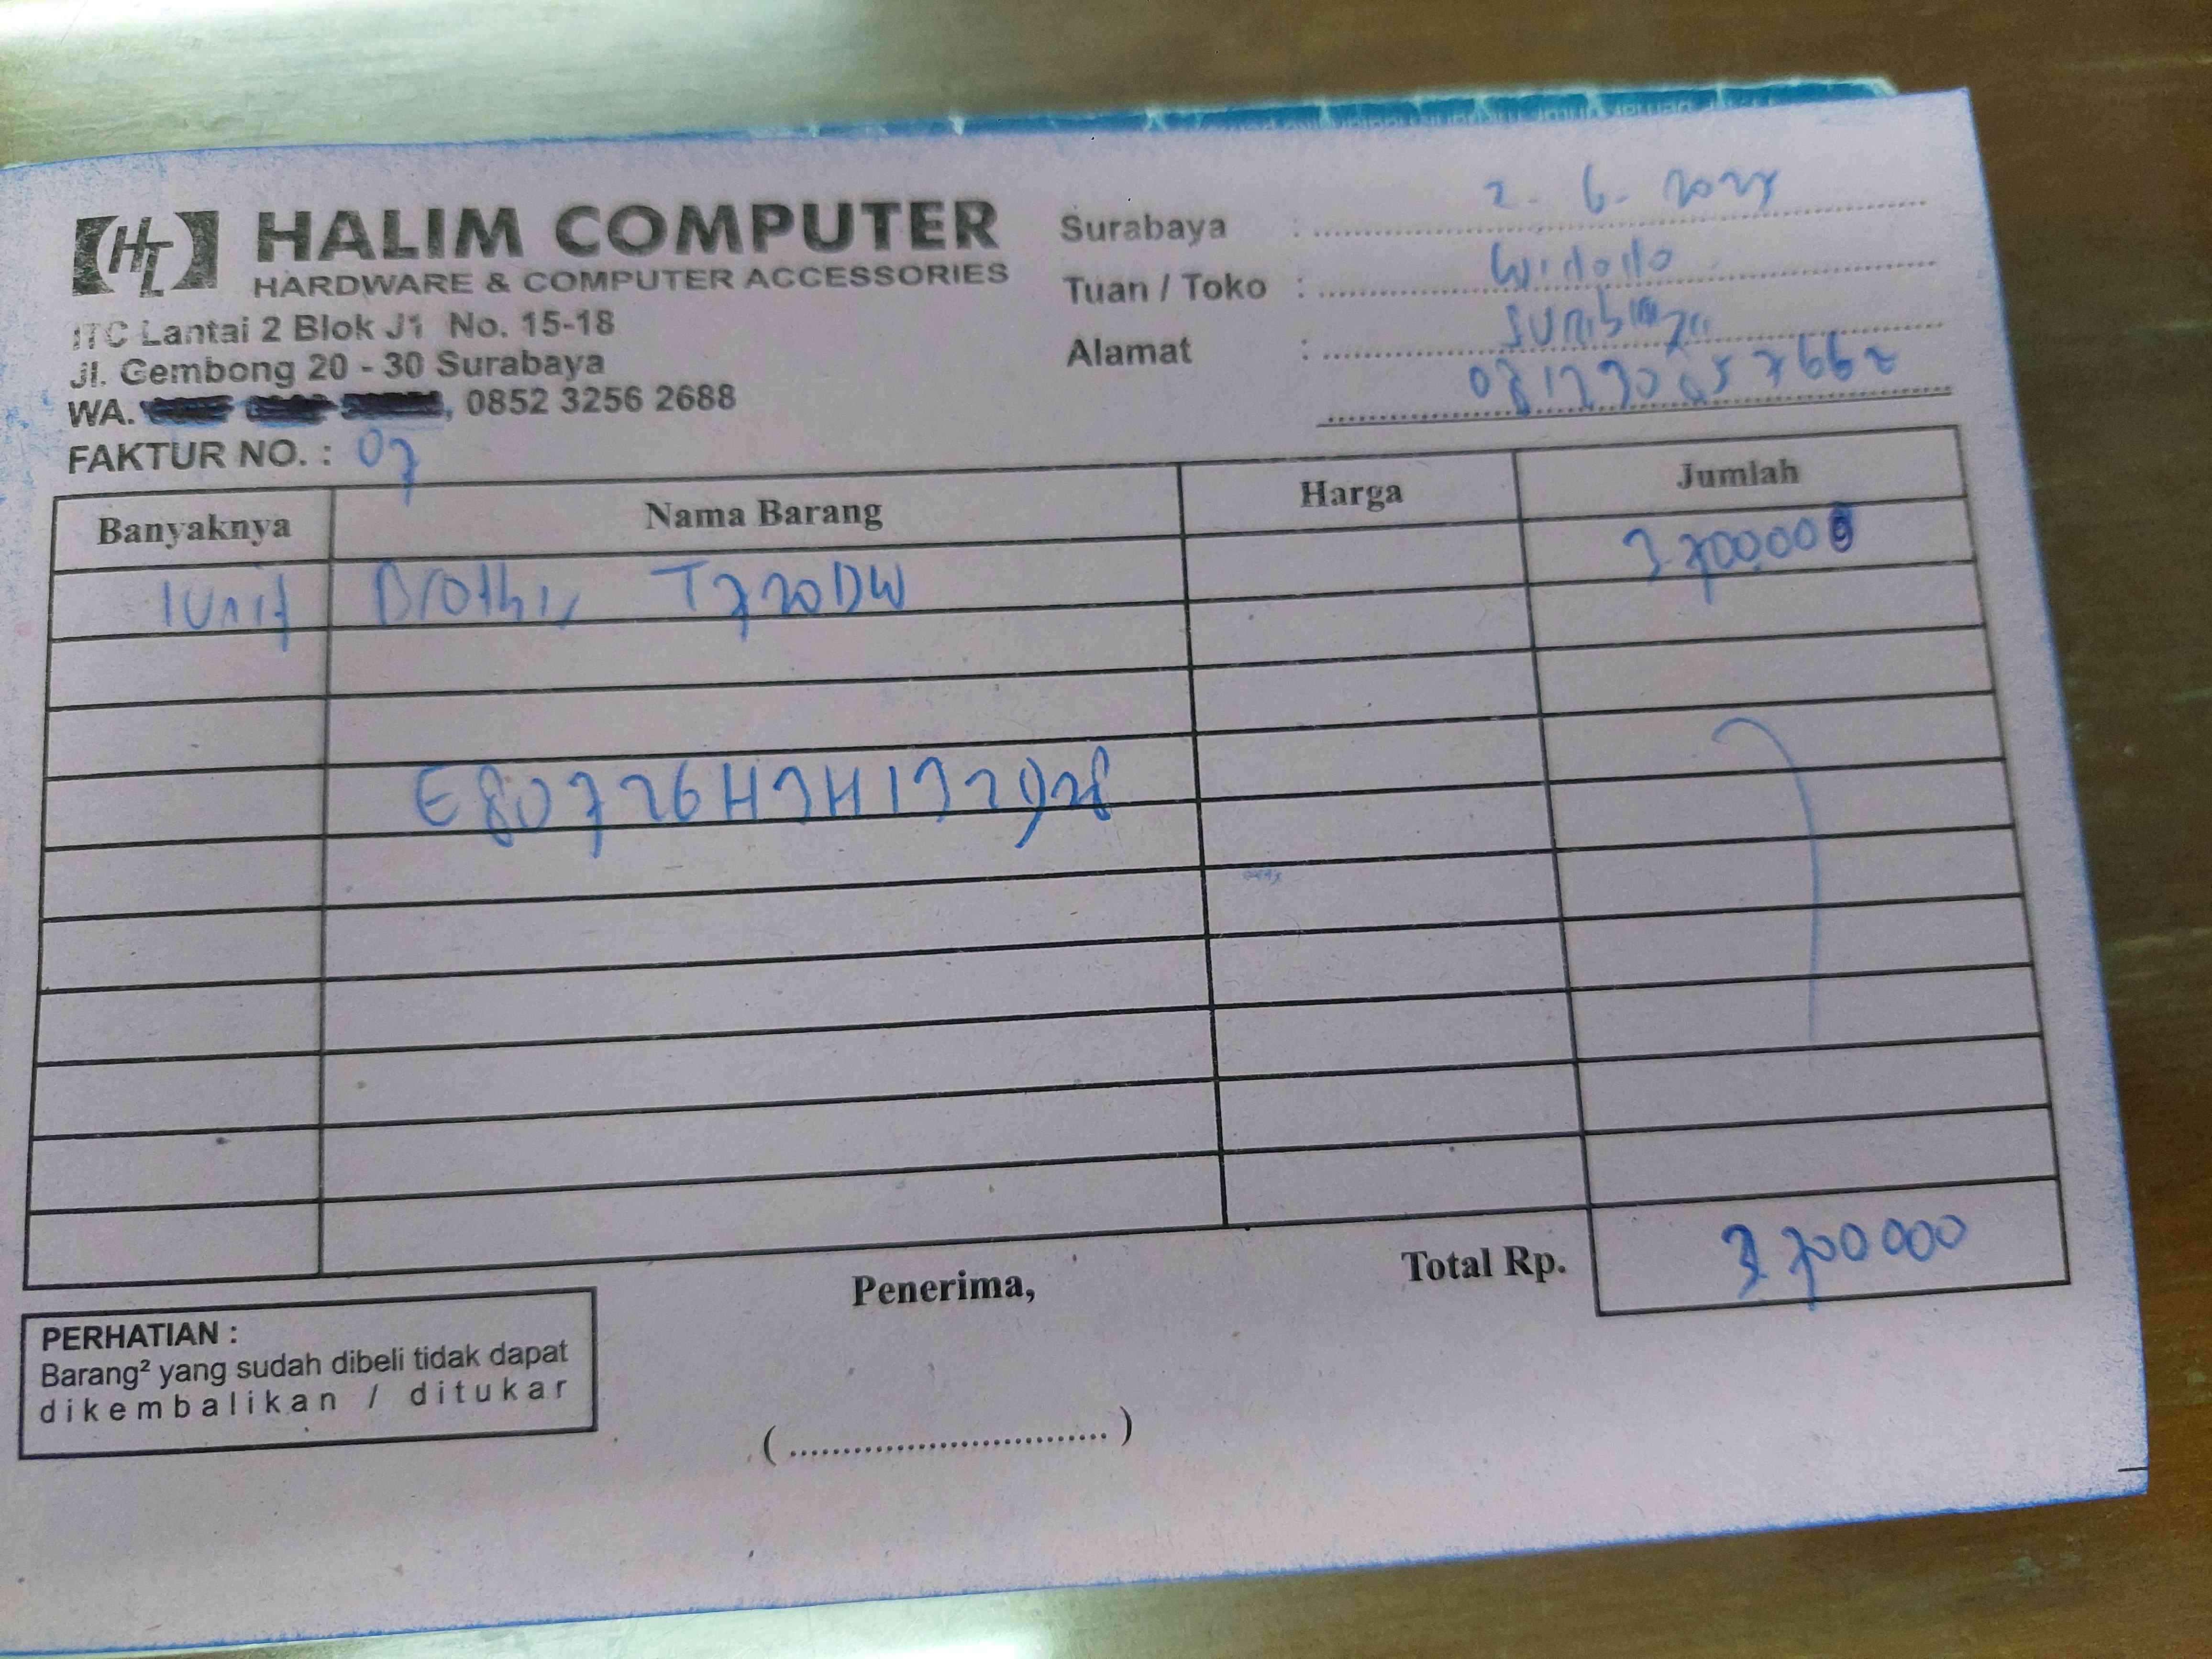 HALIM COMPUTER
HARDWARE & COMPUTER ACCESSORIES
ITC Lantai 2 Blok J1 No. 15-18
Jl. Gembong 20 - 30 Surabaya
WA. , 0852 3256 2688
FAKTUR NO. : 07
Surabaya : 2. 6. 
Tuan / Toko : Widodo
Alamat : Surabaya
Banyaknya Nama Barang Harga Jumlah
1 Unit Brother T720DW 3700000
Total Rp. 3700000
Penerima,
(..............................)
PERHATIAN :
Barang² yang sudah dibeli tidak dapat
dikembalikan / ditukar